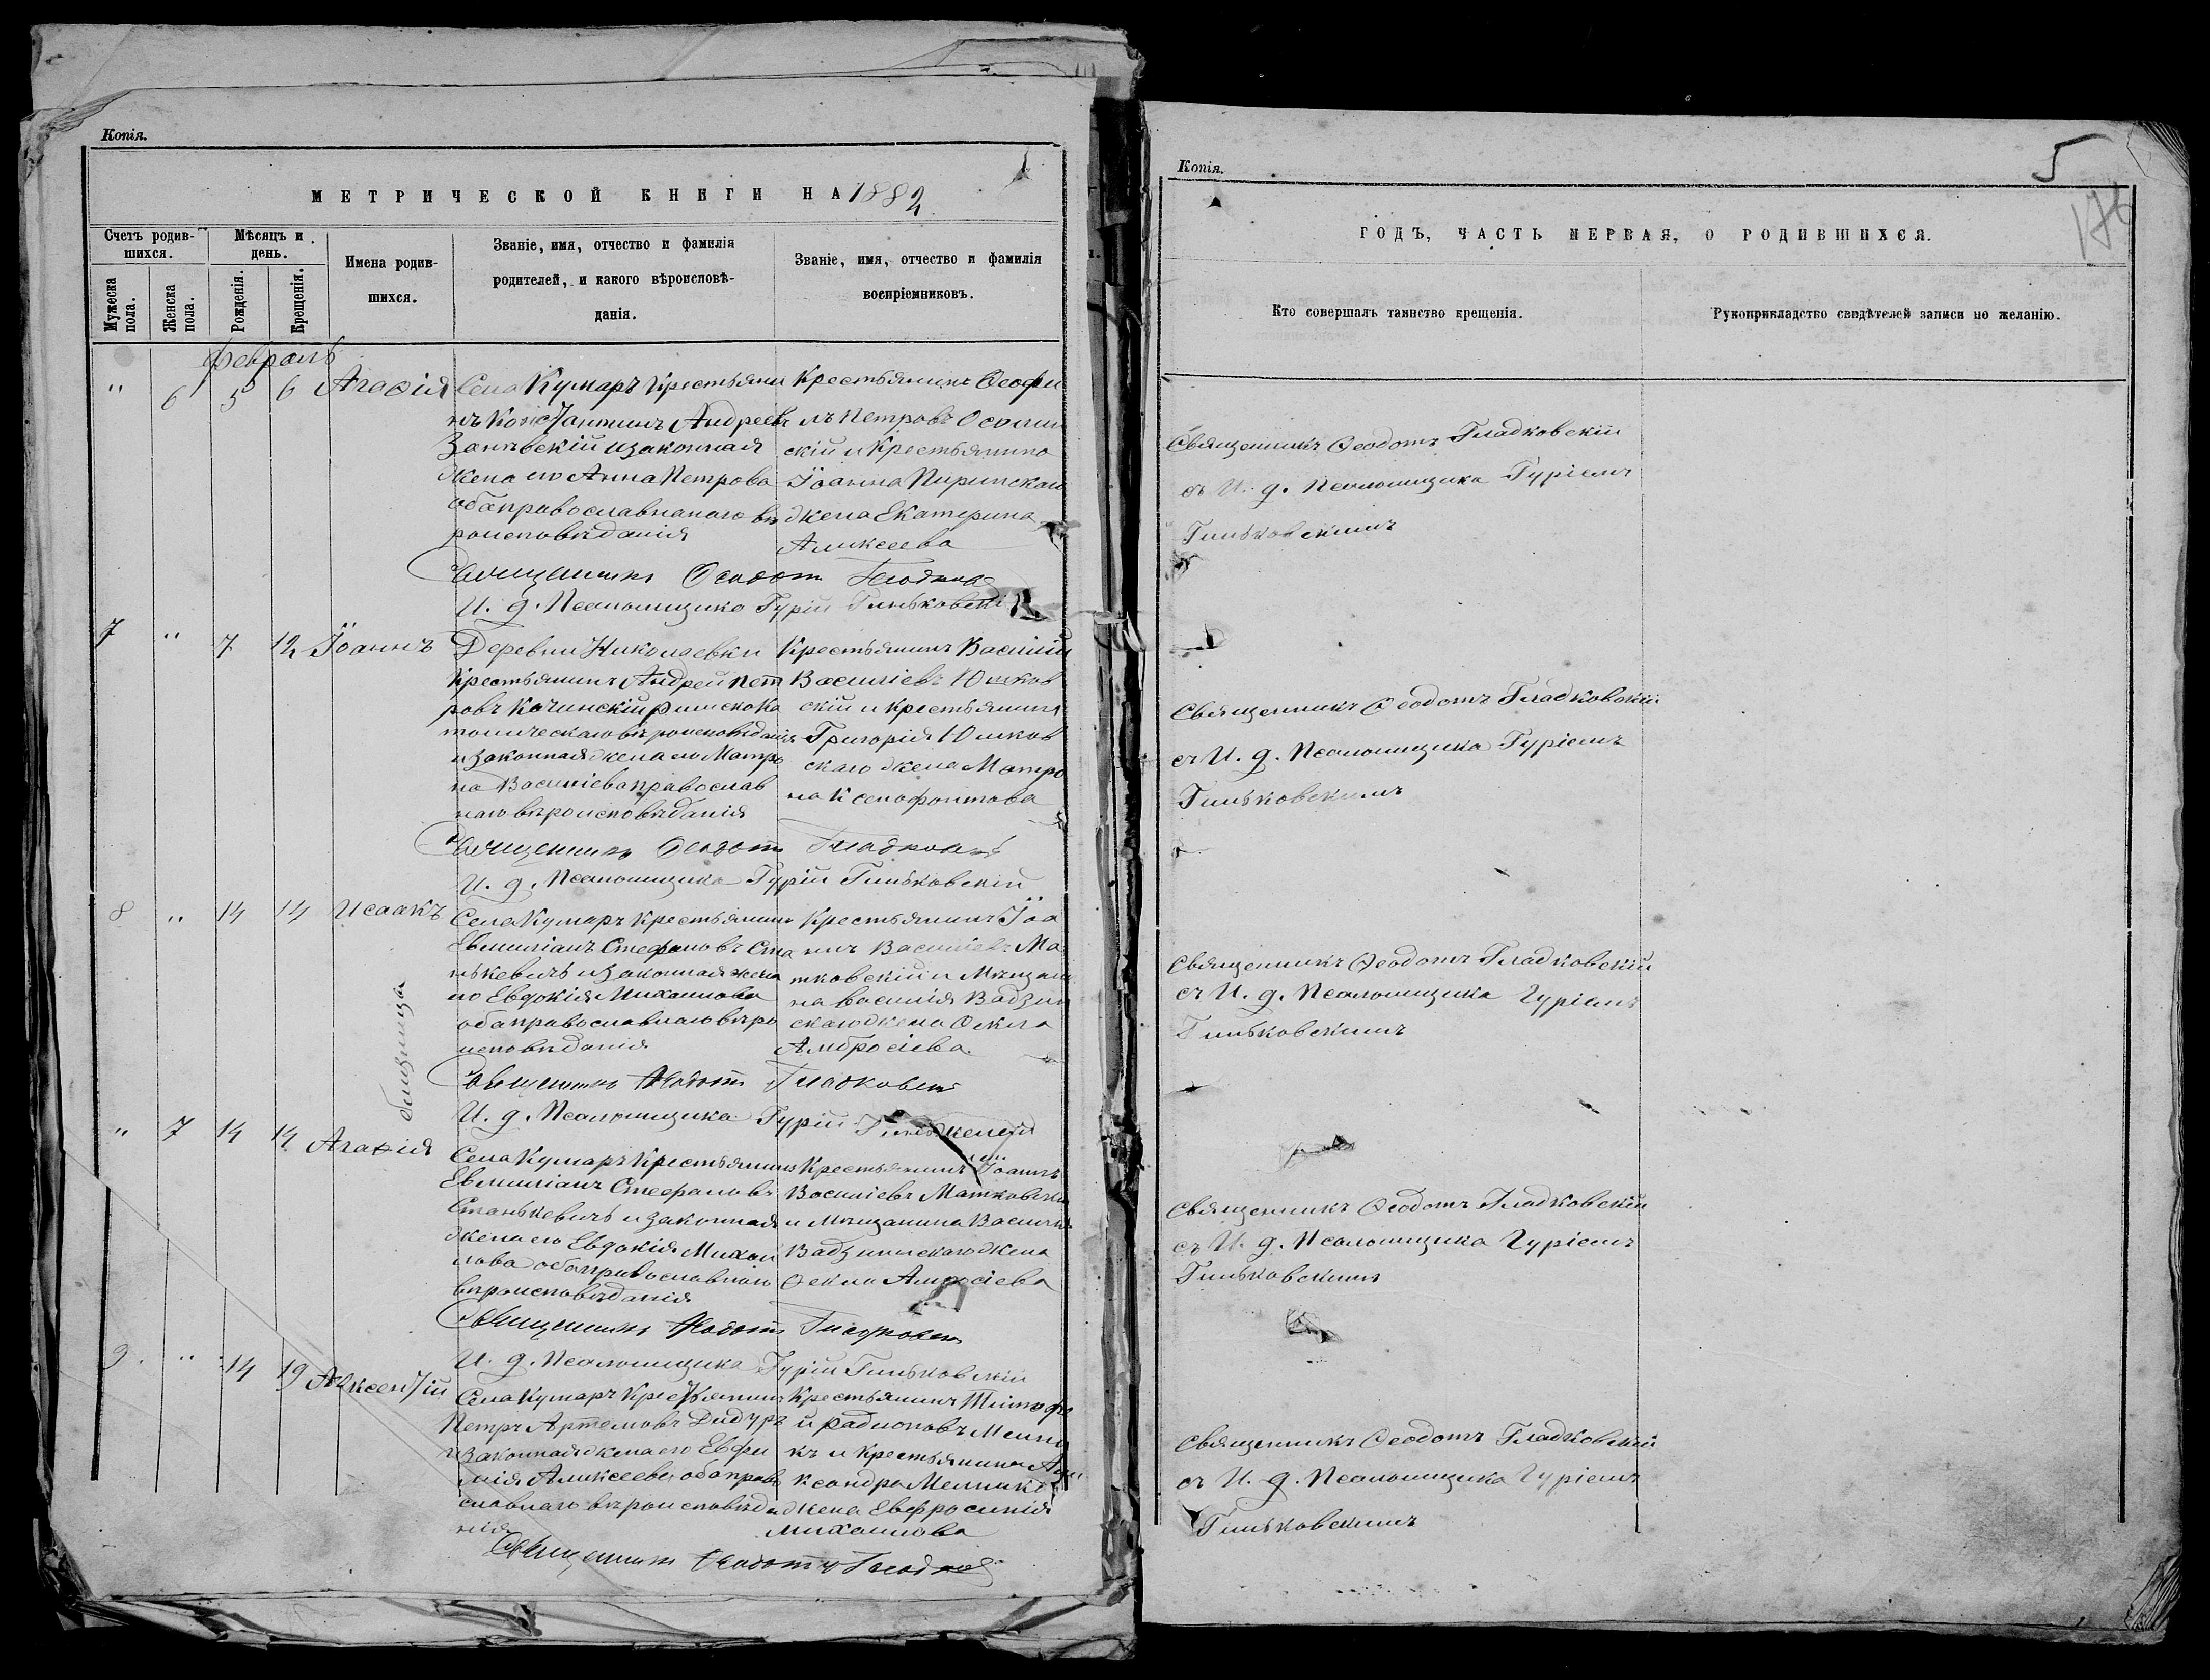 Копія.
МЕТРИЧЕСКОЙ КНИГИ НА 1882
Счетъ родив-
шихся.
Мѣсяцъ и
день.
Имена родив-
шихся.
Званіе, имя, отчество и фамилія
родителей, и какого вѣроисповѣ-
данія.
Званіе, имя, отчество и фамилія
воспріемниковъ.
Мужеска
пола.
Женска
пола.
Рожденія.
Крещенія.
Февраль
" 6 5 6 Агаѳія
Села Кумаръ крестьяни
нъ Константинъ Андреевъ
Заневскій и законная
жена его Анна Петрова
оба православнаго вѣ
роисповѣданія
Крестьянинъ Ѳеофи
лъ Петровъ
скій и крестьянина
Іоанна Пиринскаго
жена Екатерина
Алексеева
Священникъ Ѳеодотъ Гладков
И. д. Псаломщика Гурій Гиньковскій
7 " 7 12 Іоаннъ
Деревни Николаевки
крестьянинъ Андрей Пет
ровъ Качинскій римскока
толическаго вѣроисповѣданія
и законная жена его Матро
на Василіева православ
наго вѣроисповѣданія
Крестьянинъ Василій
Василіевъ Юшков
скій и крестьянина
Григорія Юшков
скаго жена Матро
на Ксенофонтова
Священникъ Ѳеодотъ Гладков
И. д. Псаломщика Гурій Гиньковскій
8 " 14 14 Исаакъ
близнецы
Села Кумаръ крестьянинъ
Евмиліанъ Стефановъ Ста
нькевичъ и законная жена
его Евдокія Михаилова
оба православнаго вѣро
исповѣданія
Крестьянинъ Іоа
ннъ Василіевъ Ма
тковскій и мѣщани
на Василія Вадзин
скаго жена Ѳекла
Амбросіева.
Священникъ Ѳеодотъ Гладковскі
И. д. Псаломщика Гурій Гиньковскій
" 7 14 14 Агаѳія
Села Кумаръ крестьянинъ
Евмиліанъ Стефановъ
Станькевичъ и законная
жена его Евдокія Михаи
лова оба православнаго
вѣроисповѣданія
Крестьянинъ Іоаннъ
Василіевъ Матковскій
и мѣщанина Василія
Вадзинскаго жена
Ѳекла Амросіева
Священникъ Ѳеодотъ Гладковск
И. д. Псаломщика Гурій Гиньковскій
9. " 14 19 Авксентій
Села Кумаръ крестьянинъ
Петръ Артемовъ Дидуръ
и законная жена его Евфи
мія Алексеева, оба право
славнаго вѣроисповѣда
нія
Крестьянинъ Тимофе
й Радионовъ Мельни
къ и крестьянина Але
ксандра Мельника
жена Евфросинія
Михаилова
Священникъ Ѳеодотъ Гладков
Копія.
5
176
ГОДЪ, ЧАСТЬ ПЕРВАЯ, О РОДИВШИХСЯ.
Кто совершалъ таинство крещенія.
Рукоприкладство свидѣтелей записи по желанію.
Священникъ Ѳеодотъ Гладковскій
съ И. д. Псаломщика Гуріемъ
Гиньковскимъ
Священникъ Ѳеодотъ Гладковскій
съ И. д. Псаломщика Гуріемъ
Гиньковскимъ
Священникъ Ѳеодотъ Гладковскій
съ И. д. Псаломщика Гуріемъ
Гиньковскимъ
Священникъ Ѳеодотъ Гладковскій
съ И. д. Псаломщика Гуріемъ
Гиньковскимъ
Священникъ Ѳеодотъ Гладковскій
съ И. д. Псаломщика Гуріемъ
Гиньковскимъ